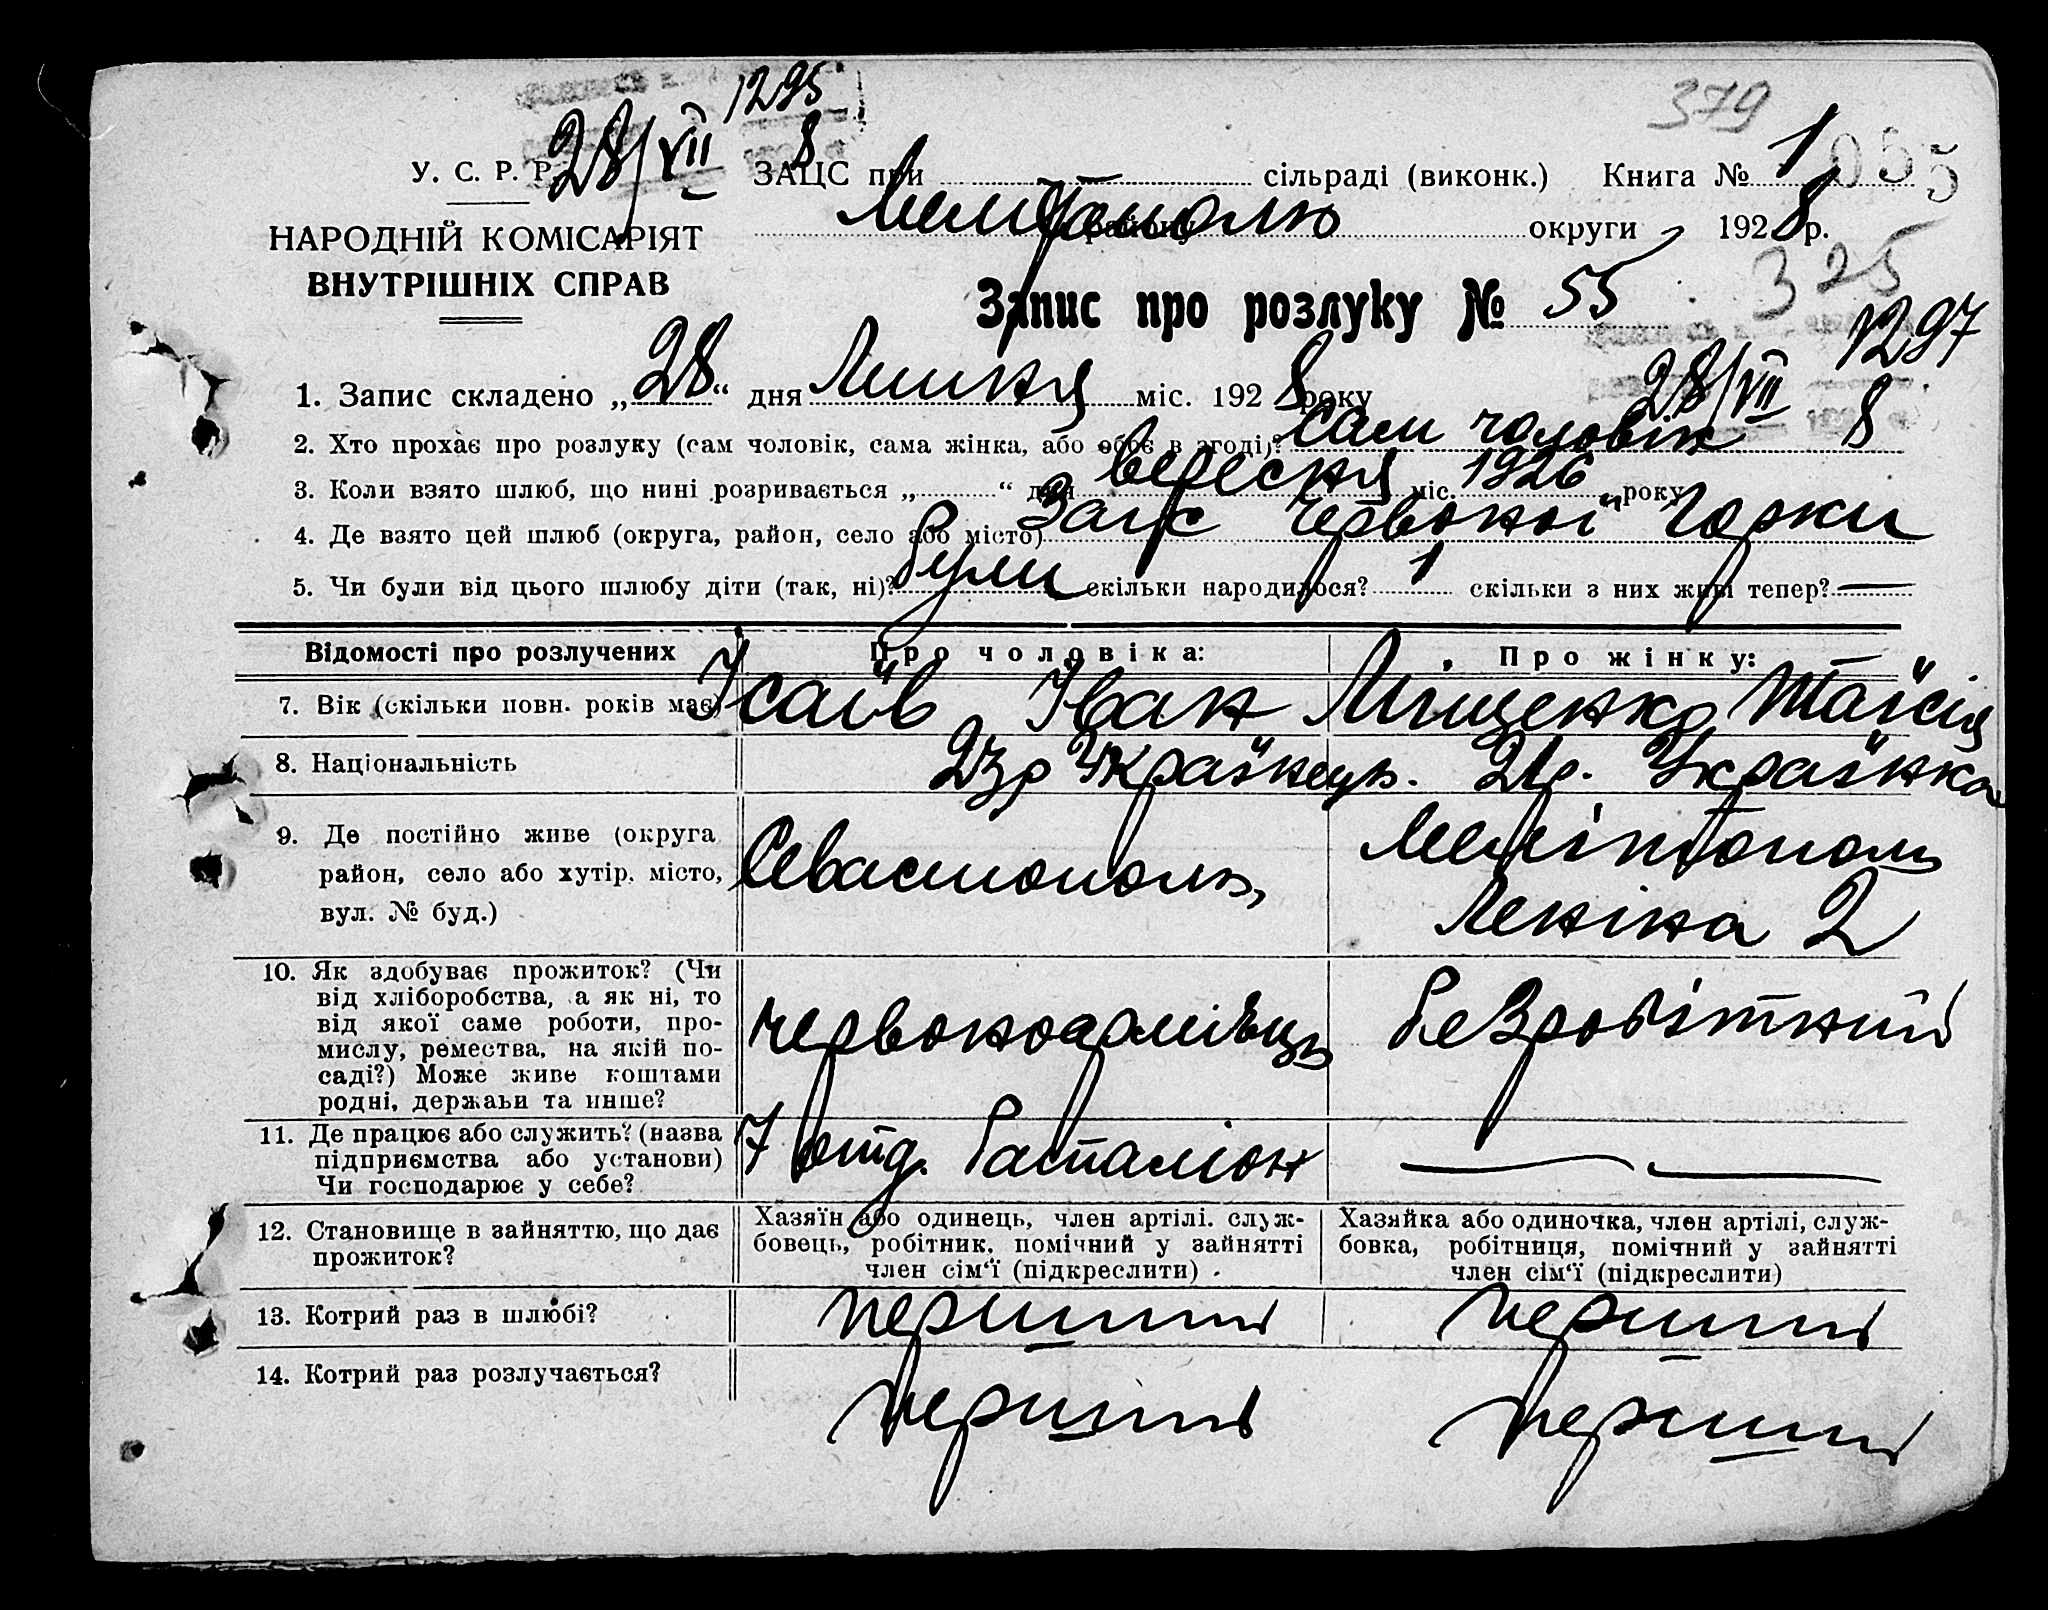 379
1295
28/VII 8
У. С. Р. Р.
ЗАЦС при сільраді (виконк.) Книга № 1
055
Мелітополю району округи 1928 р.
НАРОДНІЙ КОМІСАРІЯТ
ВНУТРІШНІХ СПРАВ
Запис про розлуку № 55
325
1297
28/VII 8
1. Запис складено „28“ дня Липня міс. 1928 року
2. Хто прохає про розлуку (сам чоловік, сама жінка, або обоє в згоді)? Сам чоловік
3. Коли взято шлюб, що нині розривається „ “ дня вересня міс. 1926 року
4. Де взято цей шлюб (округа, район, село або місто) Загс Червоної Горки
5. Чи були від цього шлюбу діти (так, ні)? були скільки народилося? 1 скільки з них живі тепер? —
Відомості про розлучених Про чоловіка: Про жінку:
Ісаїв Іван Міщенко Таїсія
7. Вік (скільки повн. років має) 23р 21р.
8. Національність Українець. Українка
9. Де постійно живе (округа район, село або хутір, місто, вул. № буд.)
Севастополь,
Мелітополь
Леніна 2
10. Як здобуває прожиток? (Чи
від хліборобства, а як ні, то
від якої саме роботи, про-
мислу, ремества, на якій по-
саді?) Може живе коштами
родні, держави та инше?
червоноармієць
безробітний
11. Де працює або служить? (назва
підприємства або установи)
Чи господарює у себе?
7 отд. батальон
—
12. Становище в зайняттю, що дає
прожиток?
Хазяїн або одинець, член артілі, служ-
бовець, робітник, помічний у зайнятті
член сім'ї (підкреслити)
Хазяйка або одиночка, член артілі, служ-
бовка, робітниця, помічний у зайнятті
член сім'ї (підкреслити)
13. Котрий раз в шлюбі? перший перший
14. Котрий раз розлучається? перший перший